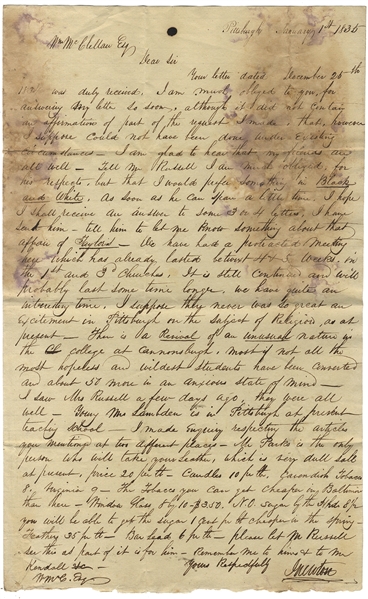 Pittsburgh January 1st 1835
Wm McClellan Esq
Dear Sir
Your letter dated December 25th
was duly received. I am much obliged to you, for
answering my letter so soon, although it did not contain
an affirmation of part of the request I made, that, however
I suppose could not have been done under existing
circumstances - I am glad to hear that my friends are
all well - Tell Mr Russell I am much obliged, for
his respects, but that I would prefer something in Black
and White. As soon as he can spare a little time, I hope
I shall receive an answer to some 3 or 4 letters, I have
sent him - tell him to let me know something about that
affair of Taylors - We have had a protracted meeting
here which has already lasted betwixt 4 & 5 weeks, in
the 1st and 3d Churches. It is still continued and will
probably last some time longer. We have quite an
interesting time. I suppose there never was so great an
excitement in Pittsburgh on the subject of Religion, as at
present - There is a Revival of an unusual nature in
the college at Cannonsburgh, most if not all the
most hopeless and wildest students have been converted
and about 50 more in an anxious state of mind -
I saw Mrs Russell a few days ago, they were all
well - Young Mr is in Pittsburgh at present
teaching School - I made enquiry respecting the articles
you mentioned at two different places - Mr Parks is the only
person who will take your leather, which is very dull sale
at present, price 20 pr lb - Candles 10 pr lb, Cavendish Tobacco
Virginia 9 - The Tobacco you can get cheaper in Baltimore
than here - Window Glass 8 by 10 - $3.50. N.O. sugar by the
you will be able to get the sugar 1 cent pr lb cheaper in the spring -
Feathers 35 pr lb - Bar Lead 6 pr lb - please let Mr Russell
see this as part of it is for him - Remember me to him & to Mr
Kendall &c -
Yours Respectfully
Wm McC. Esq
J Newton